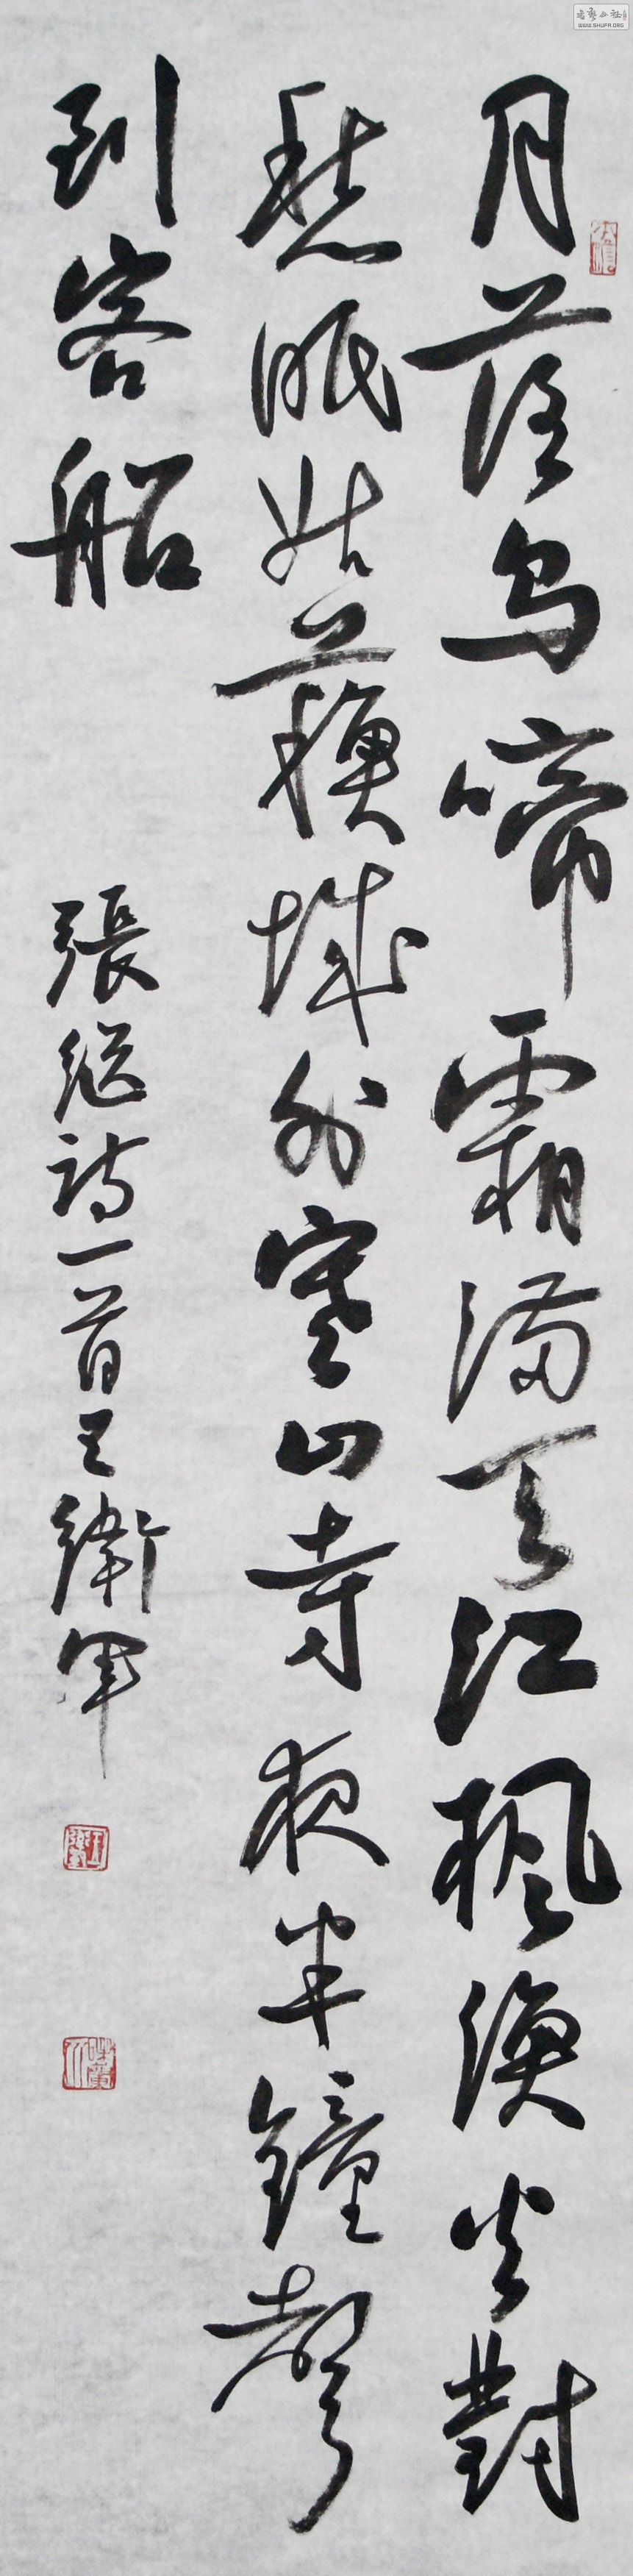 月落烏啼霜满天江楓漁火對
愁眠姑蘓城外寒山寺夜半鐘聲
到客船
張繼詩一首王衛軍
WWW.SHUFA.ORG